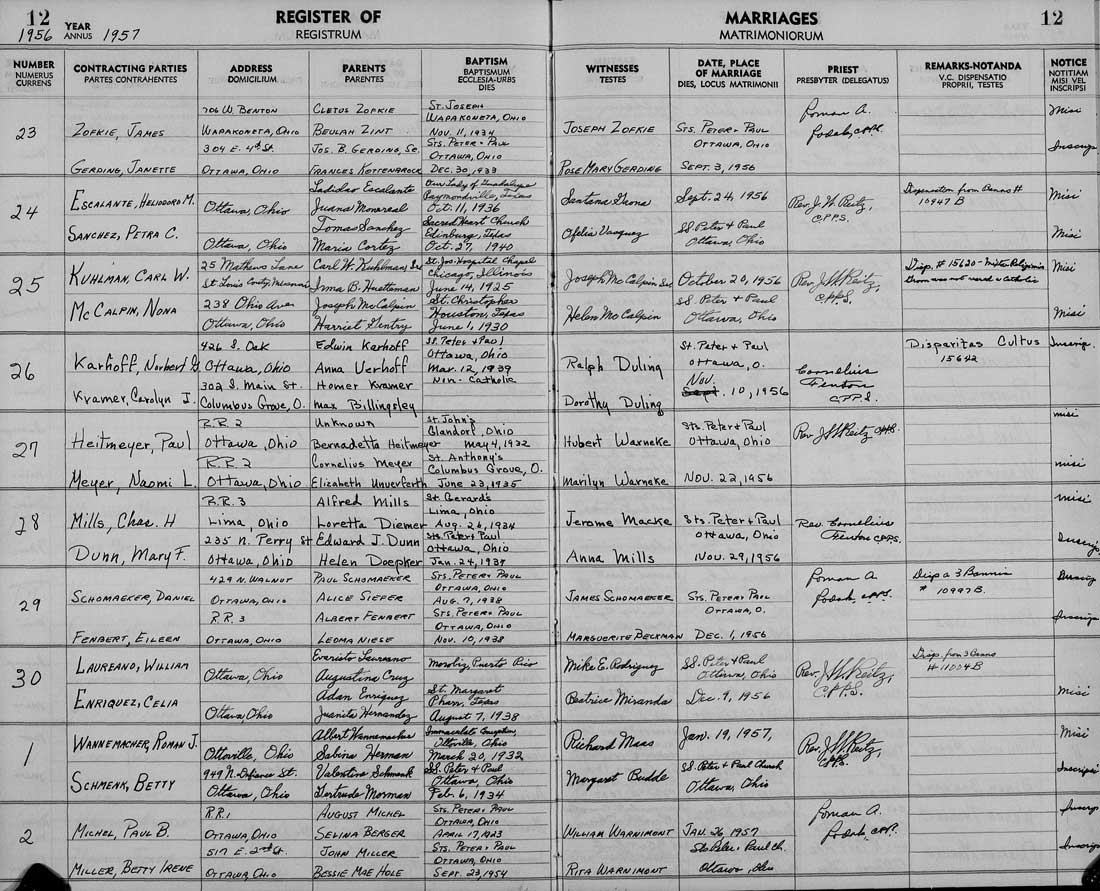 12
YEAR
1956 ANNUS 1957
REGISTER OF
REGISTRUM
MARRIAGES
MATRIMONIORUM
12
NUMBER
NUMERUS
CURRENS
CONTRACTING PARTIES
PARTES CONTRAHENTES
ADDRESS
DOMICILIUM
PARENTS
PARENTES
BAPTISM
BAPTISMUM
ECCLESIA-URBS
DIES
WITNESSES
TESTES
DATE, PLACE
OF MARRIAGE
DIES, LOCUS MATRIMONII
PRIEST
PRESBYTER (DELEGATUS)
REMARKS-NOTANDA
V.C. DISPENSATIO
PROPRII, TESTES
NOTICE
NOTITIAM
MISI VEL
INSCRIPSI
23
ZOFKIE, JAMES
GERDING, JANETTE
706 W. BENTON
WAPAKONETA, OHIO
304 E. 4th St.
OTTAWA, OHIO
CLETUS ZOFKIE
BEULAH ZINT
JOS. B. GERDING, SR.
FRANCES KOTTENBROCK
ST. JOSEPH
WAPAKONETA, OHIO
NOV. 11, 1934
STS. PETER + PAUL
OTTAWA, OHIO
DEC. 30, 1933
JOSEPH ZOFKIE
ROSE MARY GERDING
STS. PETER + PAUL
OTTAWA, OHIO
SEPT. 3, 1956
Roman A.
C.PP.S.
Misi
Inscrip.
24
ESCALANTE, HELIODORO M.
SANCHEZ, PETRA C.
Ottawa, Ohio
Ottawa, Ohio
Ladislao Escalante
Juana Monreal
Tomas Sanchez
Maria Cortez
Our Lady of Guadalupe
Raymondville, Texas
Oct. 11, 1936
Sacred Heart Church
Edinburg, Texas
Oct. 27, 1940
Santana
Ofelia Vasquez
Sept. 24, 1956
SS. Peter & Paul
Ottawa, Ohio
Rev. J. W. Reitz,
C.PP.S.
Dispensation from Banns #
10947 B
Misi
Misi
25
KUHLMAN, CARL W.
McCALPIN, NONA
25 Mathews Lane
St. Louis County, Missouri
238 Ohio Ave
Ottawa, Ohio
Carl W. Kuhlman, Sr.
Irma B. Huetteman
Joseph McCalpin
Harriet Gentry
St. Jos. Hospital Chapel
Chicago, Illinois
June 14, 1925
St. Christophers
Houston, Texas
June 1, 1930
Joseph McCalpin
Helen McCalpin
October 20, 1956
SS Peter & Paul
Ottawa, Ohio
Rev. J. W. Reitz,
C.PP.S.
Disp. # 15620 - Mixtae Religionis
Misi
Misi
26
Karhoff, Norbert G.
Kramer, Carolyn J.
426 S. Oak
Ottawa, Ohio
302 S. Main St.
Columbus Grove, O.
Edwin Karhoff
Anna Verhoff
Homer Kramer
Max Billingsley
SS. Peter & Paul
Ottawa, Ohio
Mar. 12, 1939
Non-Catholic
Ralph Duling
Dorothy Duling
St. Peter & Paul
Ottawa, O.
Nov.
Sept. 10, 1956
Cornelius
Fenton
C.PP.S.
Disparitas Cultus
15642
Inscrip.
27
Heitmeyer, Paul
Meyer, Naomi L.
R.R. 2
Ottawa, Ohio
R.R. 2
Ottawa, Ohio
Unknown
Bernadette Heitmeyer
Cornelius Meyer
Elizabeth Unverferth
St. John's
Glandorf, Ohio
May 4, 1932
St. Anthony's
Columbus Grove, O.
June 23, 1935
Hubert Warneke
Marilyn Warneke
Sts. Peter & Paul
Ottawa, Ohio
Nov. 22, 1956
Rev. J. W. Reitz C.PP.S.
misi
misi
28
Mills, Chas. H
Dunn, Mary F.
R.R. 3
Lima, Ohio
235 N. Perry St
Ottawa, Ohio
Alfred Mills
Loretta Diemer
Edward J. Dunn
Helen Doepker
St. Gerard's
Lima, Ohio
Aug. 26, 1934
Sts. Peter & Paul
Ottawa, Ohio
Jan. 24, 1937
Jerome Macke
Anna Mills
Sts. Peter & Paul
Ottawa, Ohio
Nov. 29, 1956
Rev. Cornelius
Fenton C.PP.S.
misi
Inscrip.
29
SCHOMAEKER, DANIEL
FENBERT, EILEEN
429 N. WALNUT
OTTAWA, OHIO
R.R. 3
OTTAWA, OHIO
PAUL SCHOMAEKER
ALICE SIEFER
ALBERT FENBERT
LEOMA NIESE
STS. PETER + PAUL
OTTAWA, OHIO
AUG. 7, 1938
STS. PETER + PAUL
OTTAWA, OHIO
NOV. 10, 1938
JAMES SCHOMAEKER
MARGUERITE BECKMAN
STS. PETER + PAUL
OTTAWA, O.
DEC. 1, 1956
Roman A
C.PP.S.
Disp a 3 Bannis
# 10997 B.
Inscrip
Inscrip
30
LAUREANO, WILLIAM
ENRIQUEZ, CELIA
Ottawa, Ohio
Ottawa, Ohio
Evaristo Laureano
Augustina Cruz
Adan Enriquez
Juanita Hernandez
Puerto Rico
St. Margaret
Pharr, Texas
August 7, 1938
Mike E. Rodriguez
Beatrice Miranda
SS. Peter & Paul
Ottawa, Ohio
Dec. 9, 1956
Rev. J. W. Reitz,
C.PP.S.
Disp. from 3 Banns
# 11004 B
Misi
1
WANNEMACHER, ROMAN J.
SCHMENK, BETTY
Ottoville, Ohio
949 N. Defiance St.
Ottawa, Ohio
Albert Wannemacher
Sabina Herman
Valentine Schmenk
Gertrude Morman
Immaculate Conception,
Ottoville, Ohio
March 20, 1932
SS. Peter & Paul
Ottawa, Ohio
Feb. 6, 1934
Richard Maas
Margaret Budde
Jan. 19, 1957,
SS. Peter & Paul Church
Ottawa, Ohio
Rev. J. W. Reitz,
C.PP.S.
Misi
Inscripsi
2
MICHEL, PAUL B.
MILLER, BETTY IRENE
R.R. 1
OTTAWA, OHIO
517 E. 2nd St
OTTAWA, OHIO
AUGUST MICHEL
SELINA BERGER
JOHN MILLER
BESSIE MAE HOLE
STS. PETER + PAUL
OTTAWA, OHIO
APRIL 17, 1923
STS. PETER + PAUL
OTTAWA, OHIO
SEPT. 23, 1954
WILLIAM WARNIMONT
RITA WARNIMONT
JAN. 26, 1957
Sts Peter + Paul Ch.
Ottawa, Ohio
Roman A.
C.PP.S.
Inscrip
Inscrip